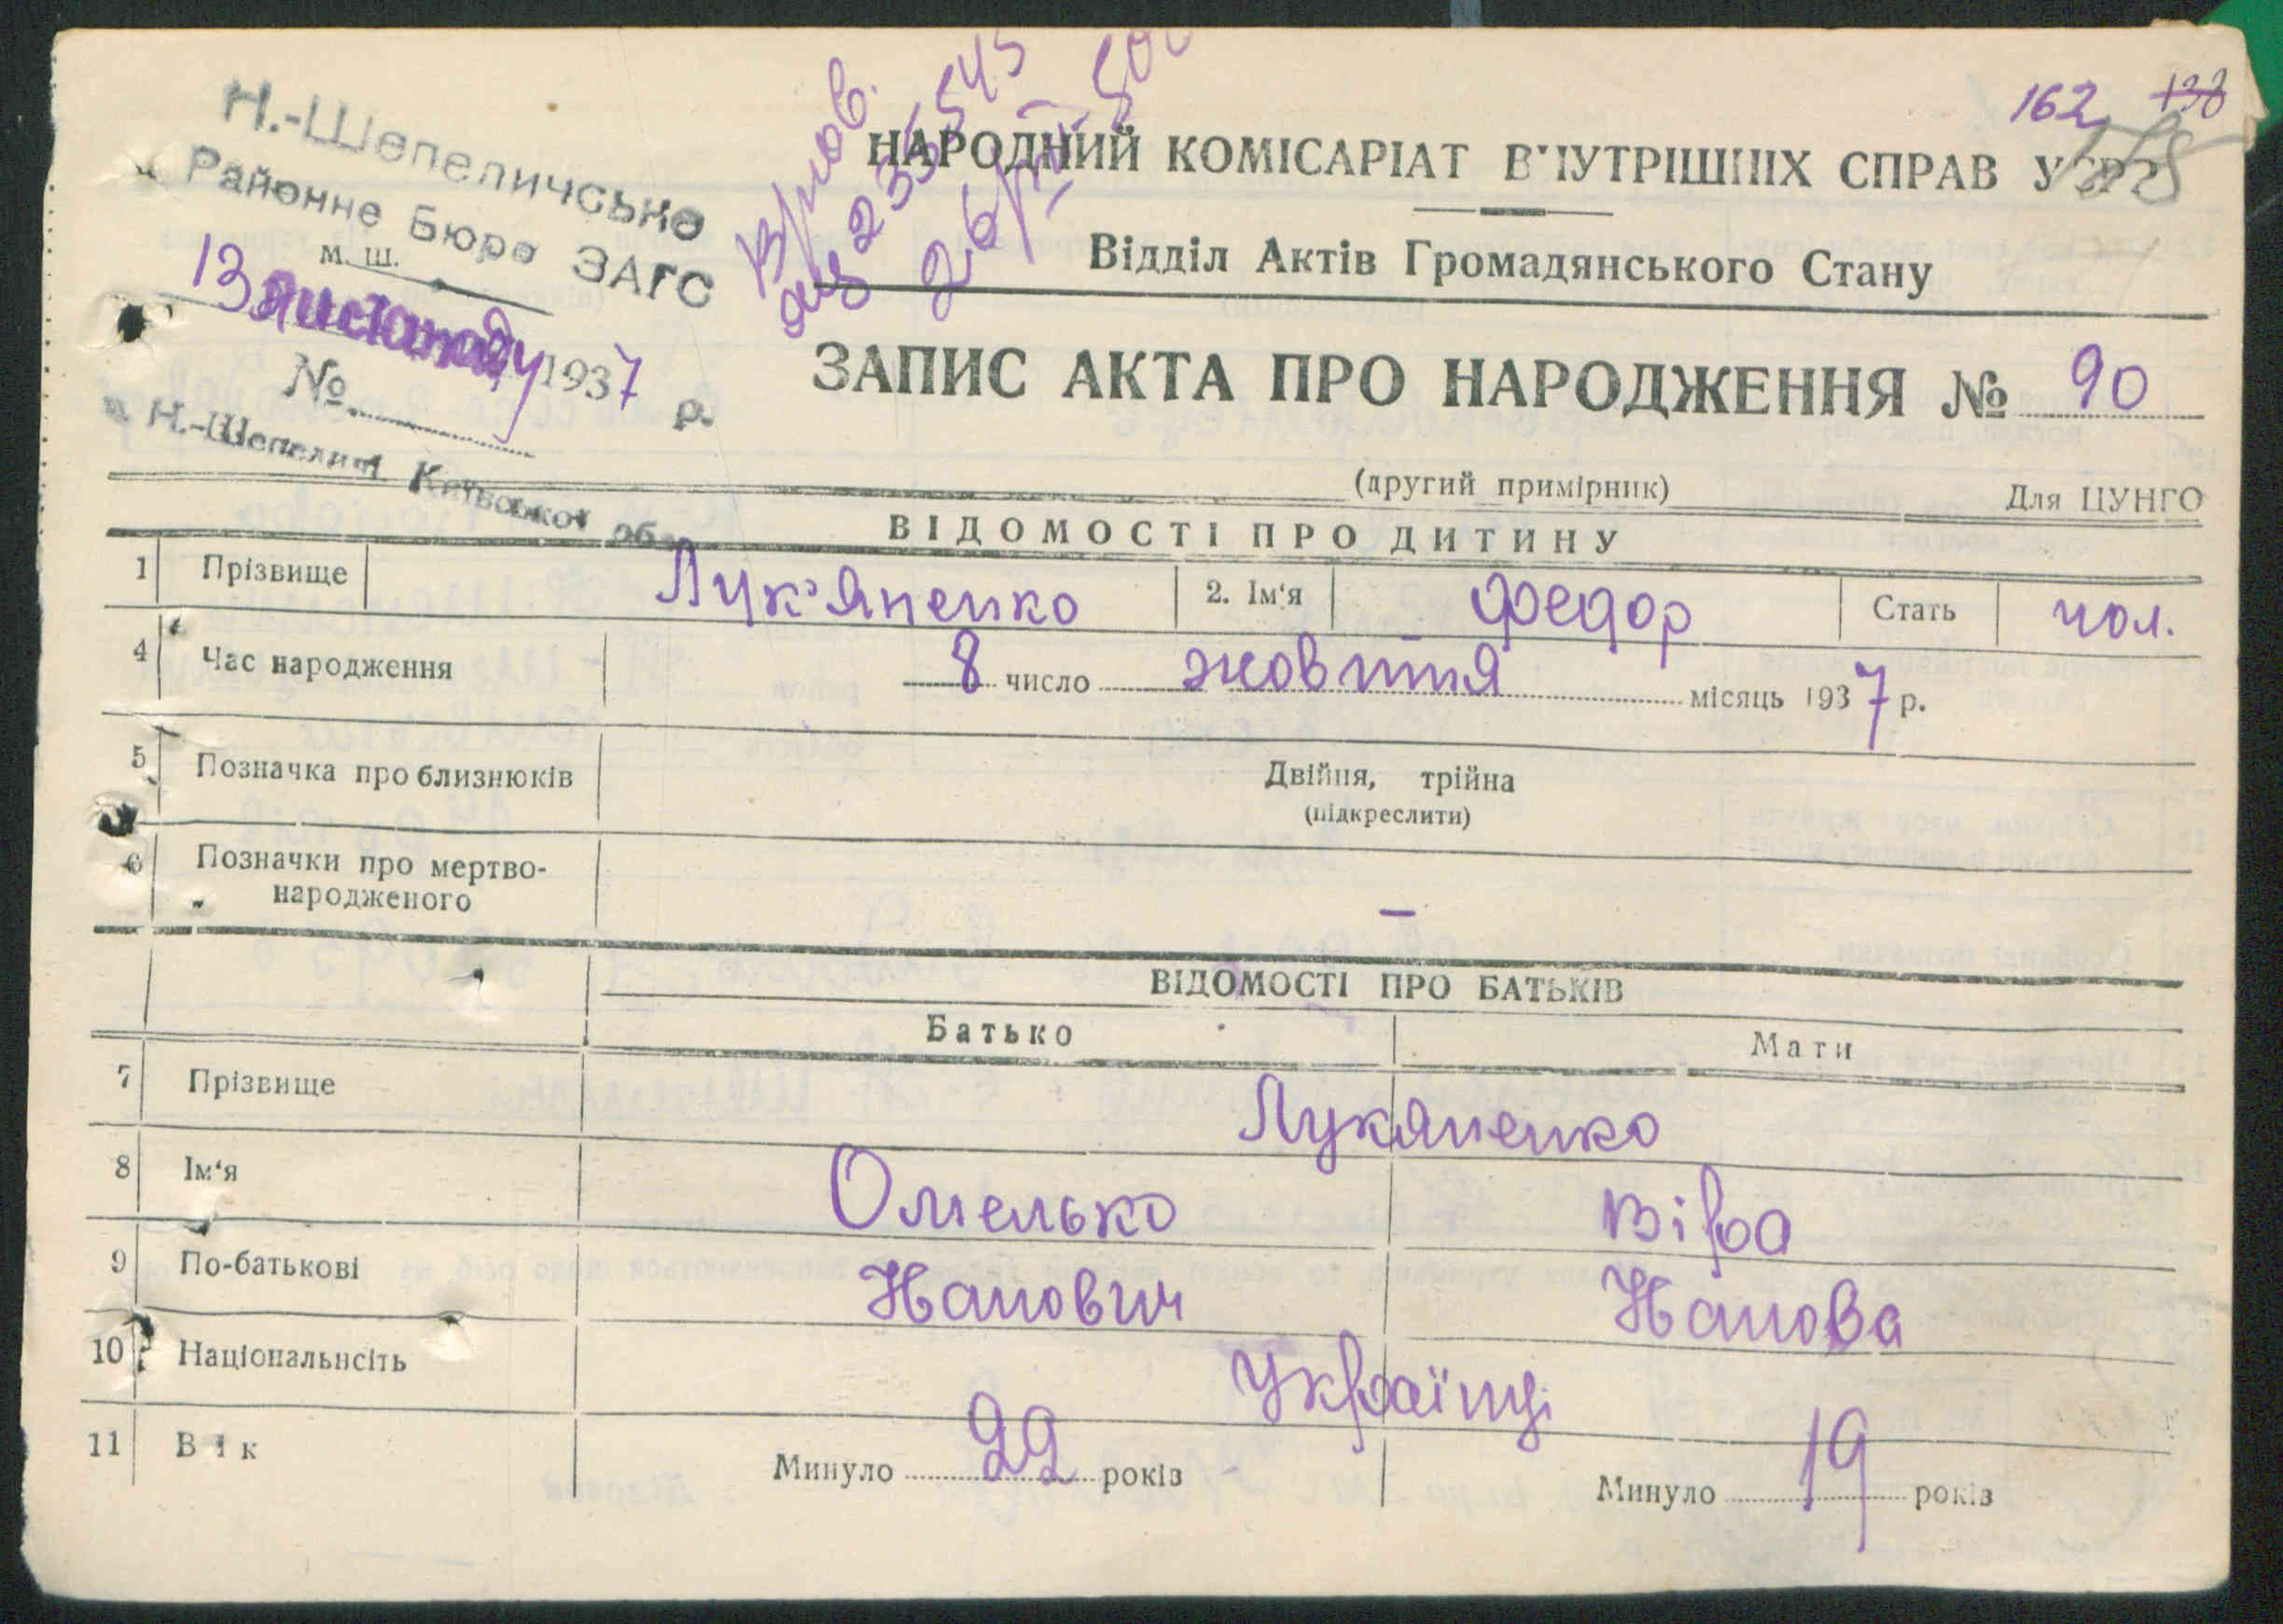 162 138
Н.-Шепеличське
Районне Бюро ЗАГС
м. ш.
13 листопаду 1937 р.
№
Н.-Шепеличі Київської об
НАРОДНИЙ КОМІСАРІАТ ВНУТРІШНІХ СПРАВ УСРР
Відділ Актів Громадянського Стану
ЗАПИС АКТА ПРО НАРОДЖЕННЯ № 90
(другий примірник)
Для ЦУНГО
ВІДОМОСТІ ПРО ДИТИНУ
1 Прізвище Лук'яненко 2. Ім'я Федор Стать чол.
4 Час народження 8 число жовтня місяць 1937 р.
5 Позначка про близнюків Двійня, трійна
(підкреслити)
6 Позначки про мертво-
народженого –
ВІДОМОСТІ ПРО БАТЬКІВ
Батько Мати
7 Прізвище Лукяненко
8 Ім'я Омелько Віра
9 По-батькові Іванович Іванова
10 Національнсіть Українці
11 Вік Минуло 22 років Минуло 19 років